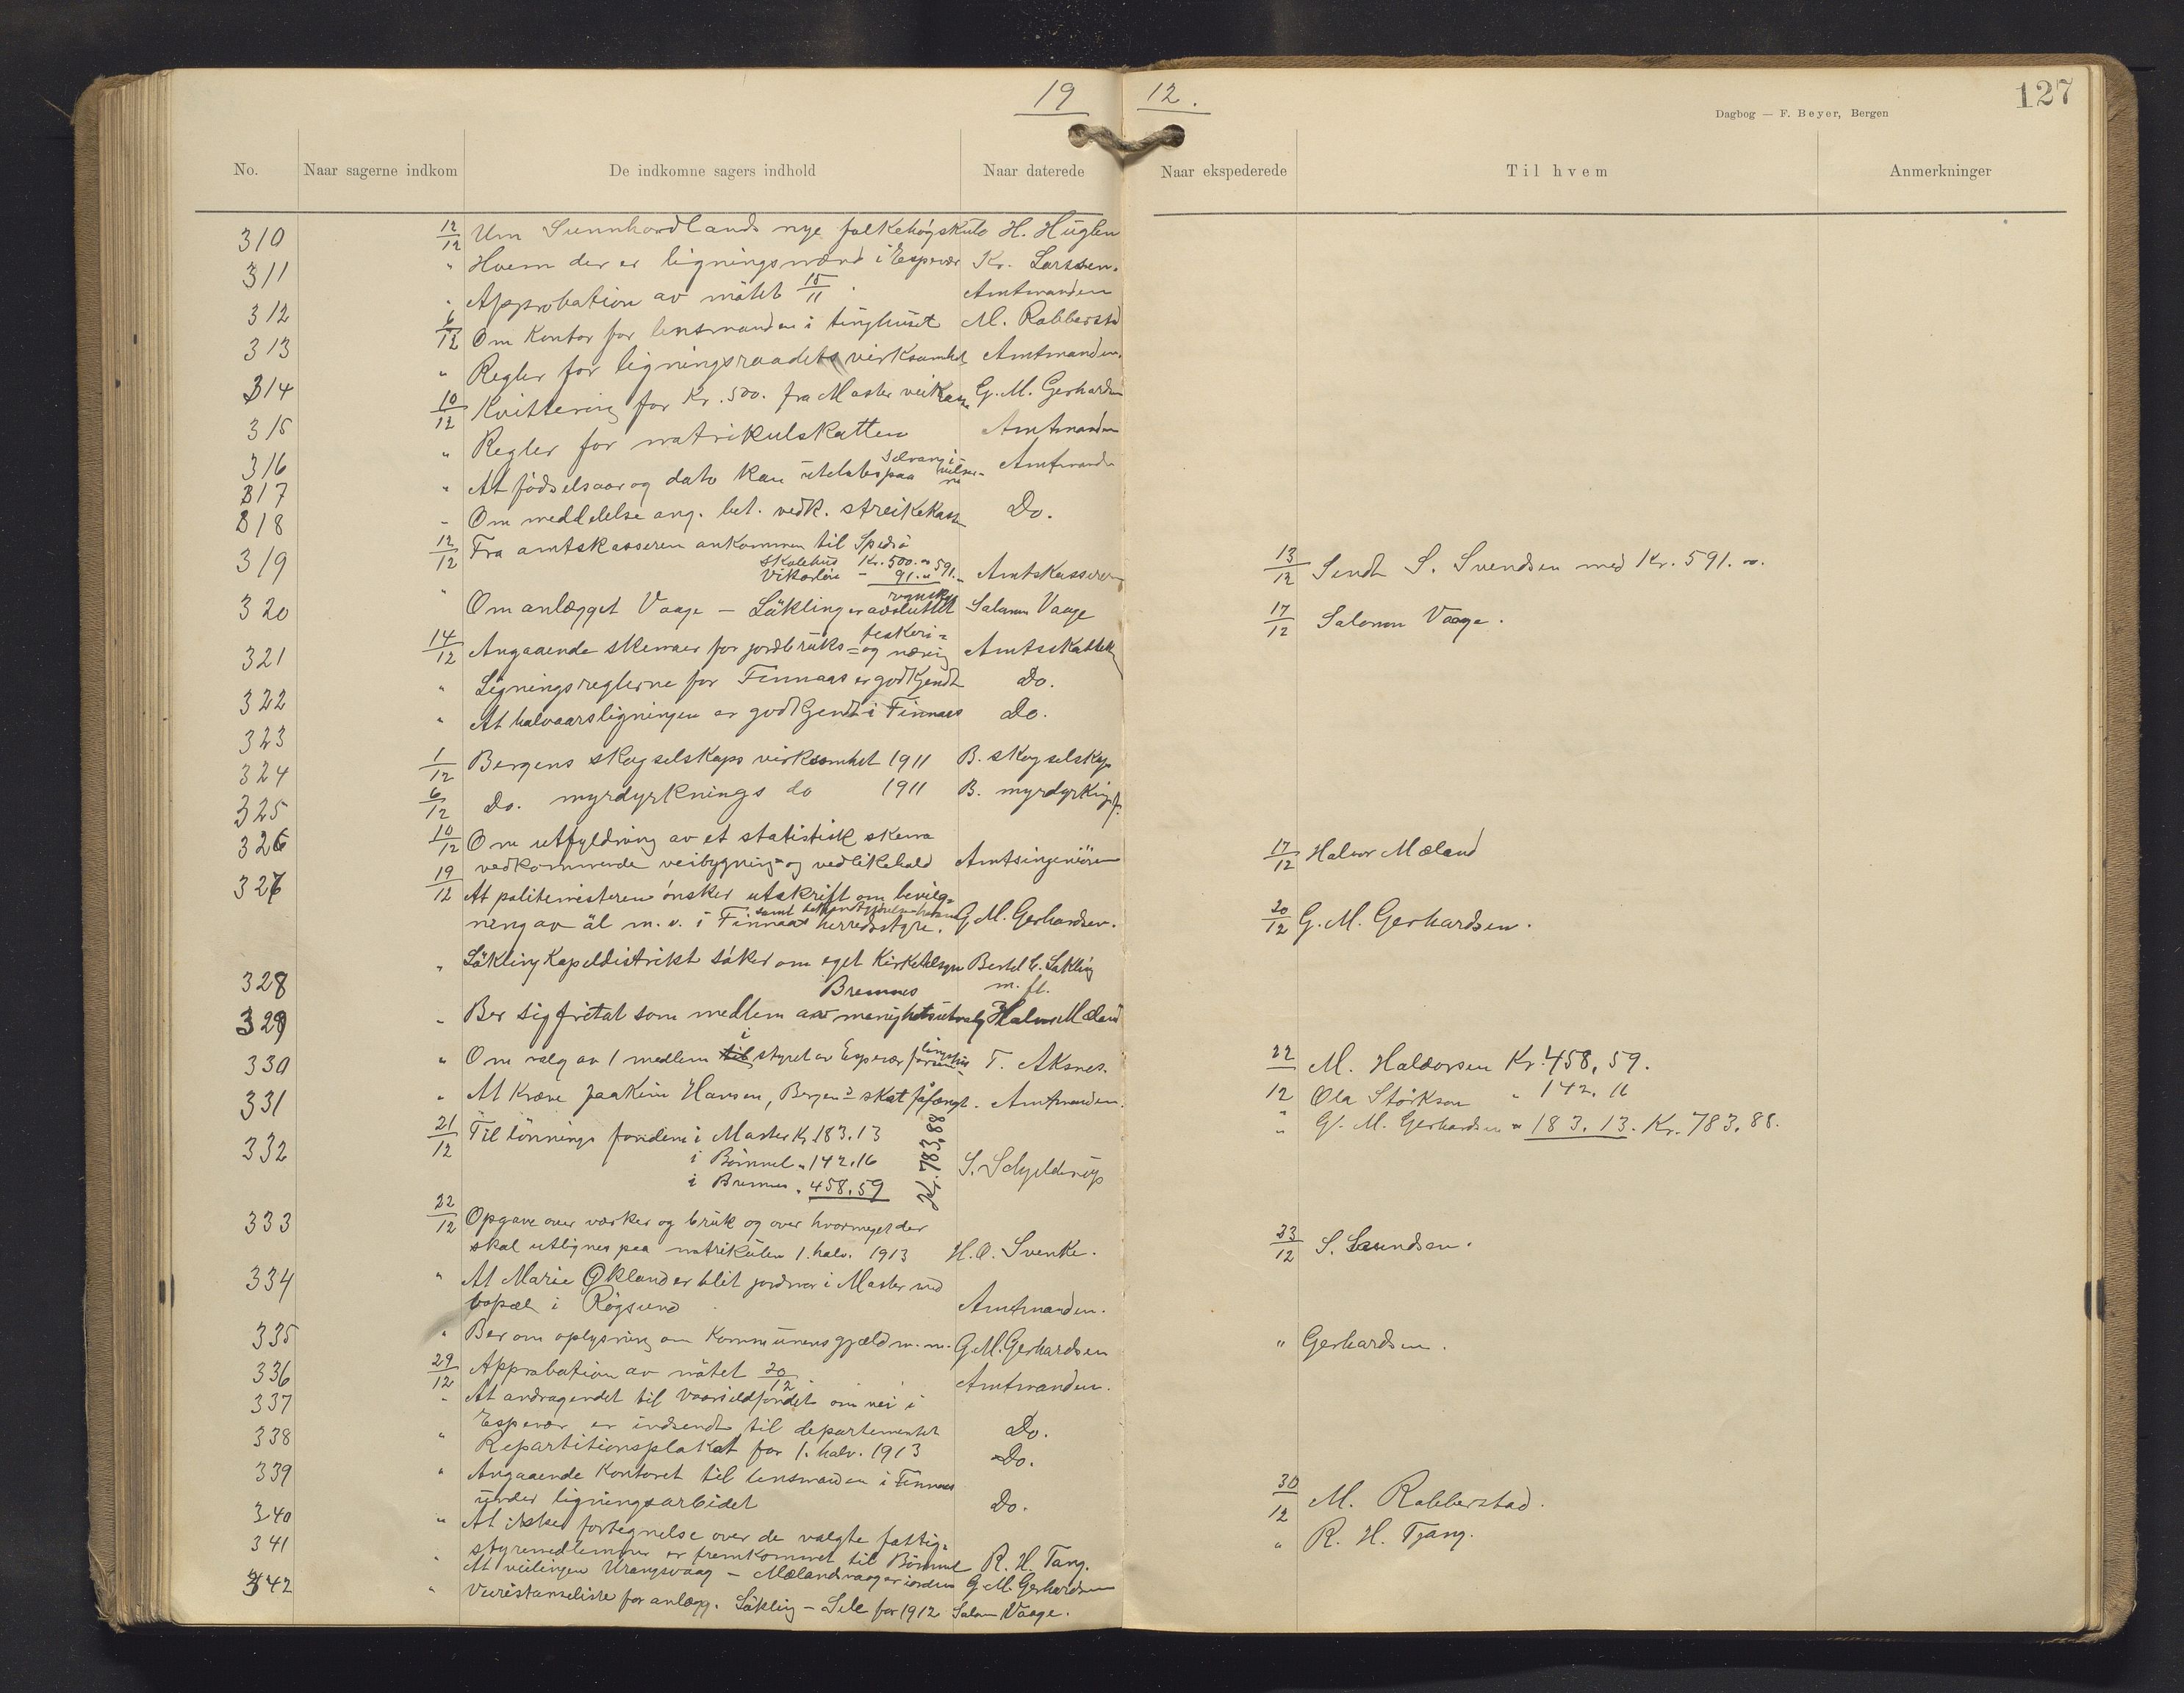 19 12.
127
Dagbog — F. Beyer, Bergen
No. Naar sagerne indkom De indkomne sagers indhold Naar daterede Naar ekspederede Til hvem Anmerkninger
310 12/12 Um Sunnhordlands nye folkehøgskule H. Huglen
311 " Hvem der er ligningsmænd i Espevær Kr. Larssen.
312 " Approbation av møtet 15/11 Amtmanden
313 6/12 Om kontor for lensmanden i tinghuset M. Rabberstad
314 " Regler for ligningsraadets virksomhet Amtmanden.
315 10/12 Kvittering for Kr. 500. fra Moster veikasse G. M. Gerhardsen
316 " Regler for matrikulskatten Amtmanden
317 " At fødselsaar og dato kan utelates paa selvangivelserne Amtmanden
318 - Om meddelelse ang. bet. vedk. streikekasse Do.
319 12/12 Fra amtskassereren ankommen til Spedsö
Skolehus Kr. 500.00 591.-
Vikarløn - 91.00 Amtskassereren 13/12 Sendt S. Svendsen med Kr. 591.00.
320 " Om anlægget Vaage - Løkling er avsluttet Salamon Vaage 17/12 Salomon Vaage.
321 14/12 Angaaende skemaer for jordbruks= fiskeri= og næring Amtsskattek
322 " Ligningsreglerne for Finnaas er godkjendt Do.
323 " At halvaarsligningen er godkjendt i Finnaas Do.
324 1/12 Bergens skogselskaps virksomhet 1911 B. skogselskap
325 6/12 Do. myrdyrknings do 1911 B. myrdyrkingsf.
326 10/12 Om utfyldning av et statistisk skema
vedkommende veibygning= og vedlikehold Amtsingeniøren 17/12 Halvor Mæland
327 19/12 At politimesteren ønsker utskrift om bevilg=
ning av øl m. v. i Finnaas herredsstyre. G. M. Gerhardsen. 20/12 G. M. Gerhardsen.
328 " Løkling kapeldistrikt søker om eget kirketilsyn Bertel E. Løkling
m. fl.
Bremnes
329 - Ber sig fritat som medlem av menighetsutvalg Halvor Mæland
330 " Om valg av 1 medlem i styret av Espevær forsamlingshus T. Aksnes. 22/12 M. Haldorsen Kr. 458,59.
331 " At kræve Joakim Hansen, Bergen's skat påfangt. Amtmanden. Ola Størkson " 142,16
332 21/12 Til lønnings fondene i Moster Kr. 183.13 " G. M. Gerhardsen " 183,13. Kr. 783,88.
i Bømmel " 142,16
i Bremnes " 458,59 Kr. 783,88 S. Schjelderup
333 22/12 Opgave over værker og bruk og over hvormeget der
skal utlignes paa matrikulen 1. halv. 1913 H. O. Svenke. 23/12 S. Svendsen.
334 " At Marie Økland er blit jordmor i Moster med
bopæl i Røgsund Amtmanden.
335 " Ber om oplysning om kommunens gjæld m. m. G. M. Gerhardsen " Gerhardsen.
336 29/12 Approbation av møtet 20/12 Amtmanden.
337 - At andragendet til vaarsildfondet om vei i
Espevær er indsendt til departementet Do.
338 " Repartitionsplakat for 1. halv. 1913 Do.
339 " Angaaende kontoret til lensmanden i Finnaas
under ligningsarbeidet Do. 30/12 M. Rabberstad.
340 " At ikke fortegnelse over de valgte fattig=
styremedlemmer er fremkommet til Bømmel R. H. Tang. " R. H. Tjang.
341 " At veilinjen Urangsvaag - Mælandsvaag er i orden G. M. Gerhardsen
342 " Veiristanseliste for anlægg. Løkling - Sele for 1912 Salom Vaage.